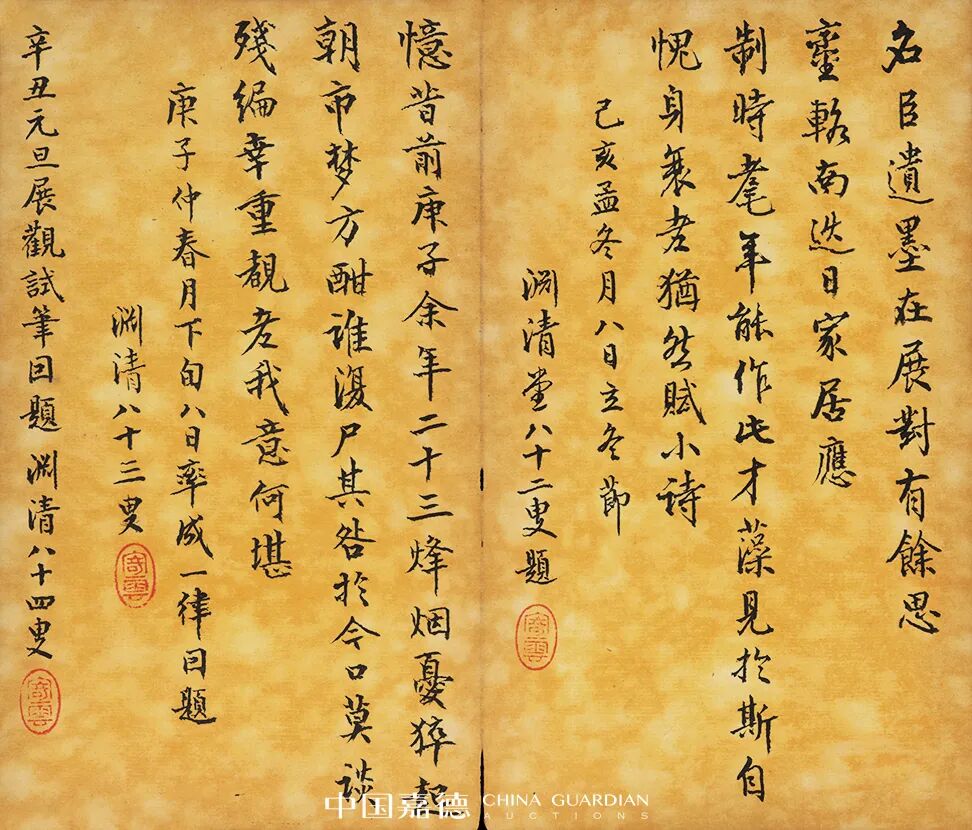 名臣遺墨在展對有餘思
鑾輅南巡日家居應
制時耄年能作此才藻見於斯自
愧身衰老猶然賦小詩
己亥孟冬月八日立冬節
淵清堂八十二叟題
寄雲
憶昔前庚子余年二十三烽烟憂猝起
朝市梦方酣誰復尸其咎於今口莫談
殘編幸重覩老我意何堪
庚子仲春月下旬八日率成一律囙題
淵清八十三叟
寄雲
辛丑元旦展觀試筆囙題 淵清八十四叟
寄雲
中国嘉德 CHINA GUARDIAN
AUCTIONS